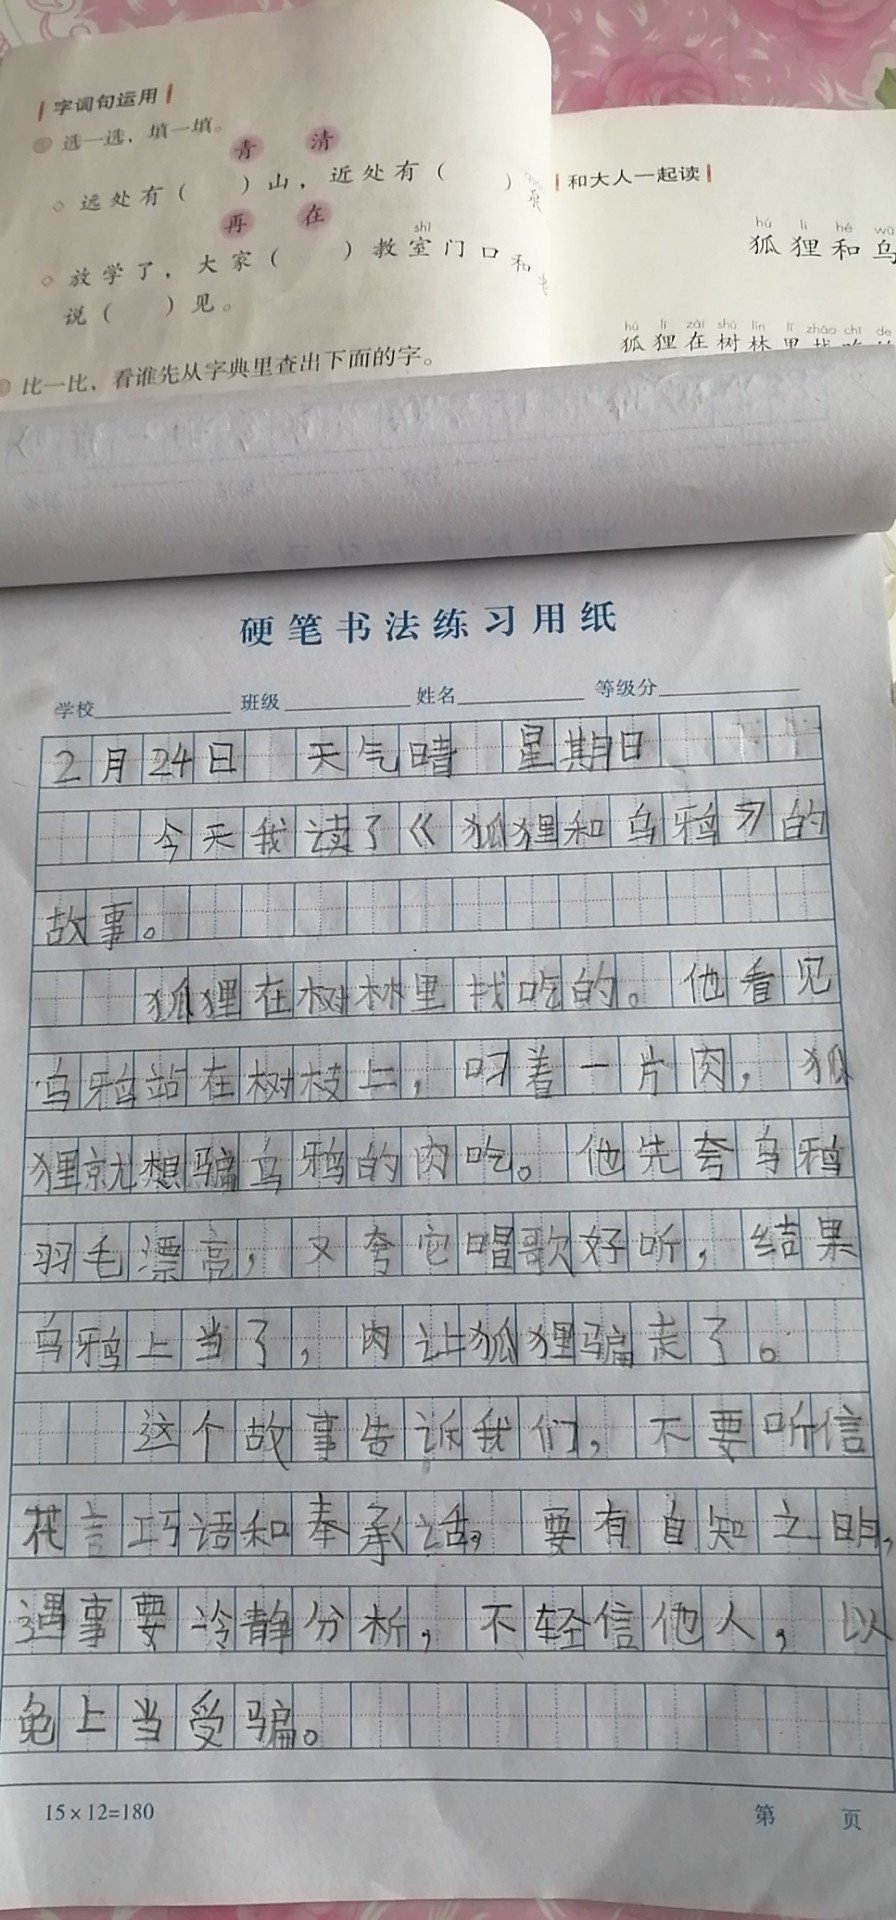 字词句运用
选一选，填一填。
青 清
远处有（ ）山，近处有（ ）
再 在
shì
放学了，大家（ ）教室门口和
说（ ）见。
比一比，看谁先从字典里查出下面的字。
和大人一起读
hú li hé wū
狐狸和乌
hú li zài shù lín lǐ zhǎo chī de
狐狸在树林里找吃的
硬笔书法练习用纸
学校 班级 姓名 等级分
2月24日 天气晴 星期日
今天我读了《狐狸和乌鸦》的
故事。
狐狸在树林里找吃的。他看见
乌鸦站在树枝上，叼着一片肉，狐
狸就想骗乌鸦的肉吃。他先夸乌鸦
羽毛漂亮，又夸它唱歌好听，结果
乌鸦上当了，肉让狐狸骗走了。
这个故事告诉我们，不要听信
花言巧语和奉承话，要有自知之明，
遇事要冷静分析，不轻信他人，以
免上当受骗。
15×12=180
第 页